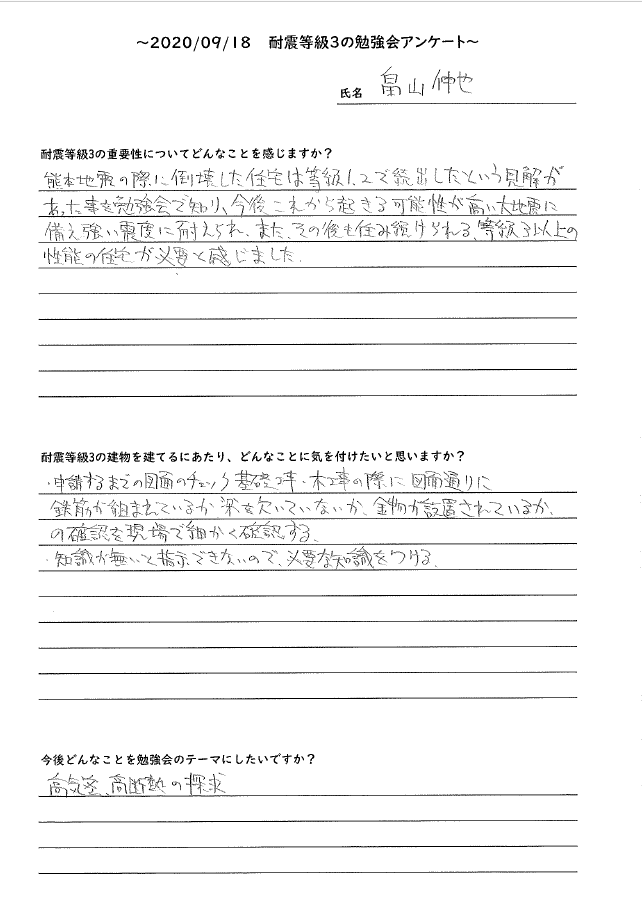 ～2020/09/18　耐震等級3の勉強会アンケート～
氏名 畠山 伸也
耐震等級3の重要性についてどんなことを感じますか？
熊本地震の際に倒壊した住宅は等級1、2で続出したという見解が
あった事を勉強会で知り、今後これから起きる可能性が高い大地震に
備え強い震度に耐えられ、また、その後も住み続けられる、等級3以上の
性能の住宅が必要と感じました。
耐震等級3の建物を建てるにあたり、どんなことに気を付けたいと思いますか？
・申請するまでの図面のチェック 基礎工事・木工事の際に図面通りに
鉄筋が組まれているか、梁を欠いていないか、金物が設置されているか、
の確認を現場で細かく確認する。
・知識が無いと指示できないので、必要な知識をつける。
今後どんなことを勉強会のテーマにしたいですか？
高気密、高断熱の探求